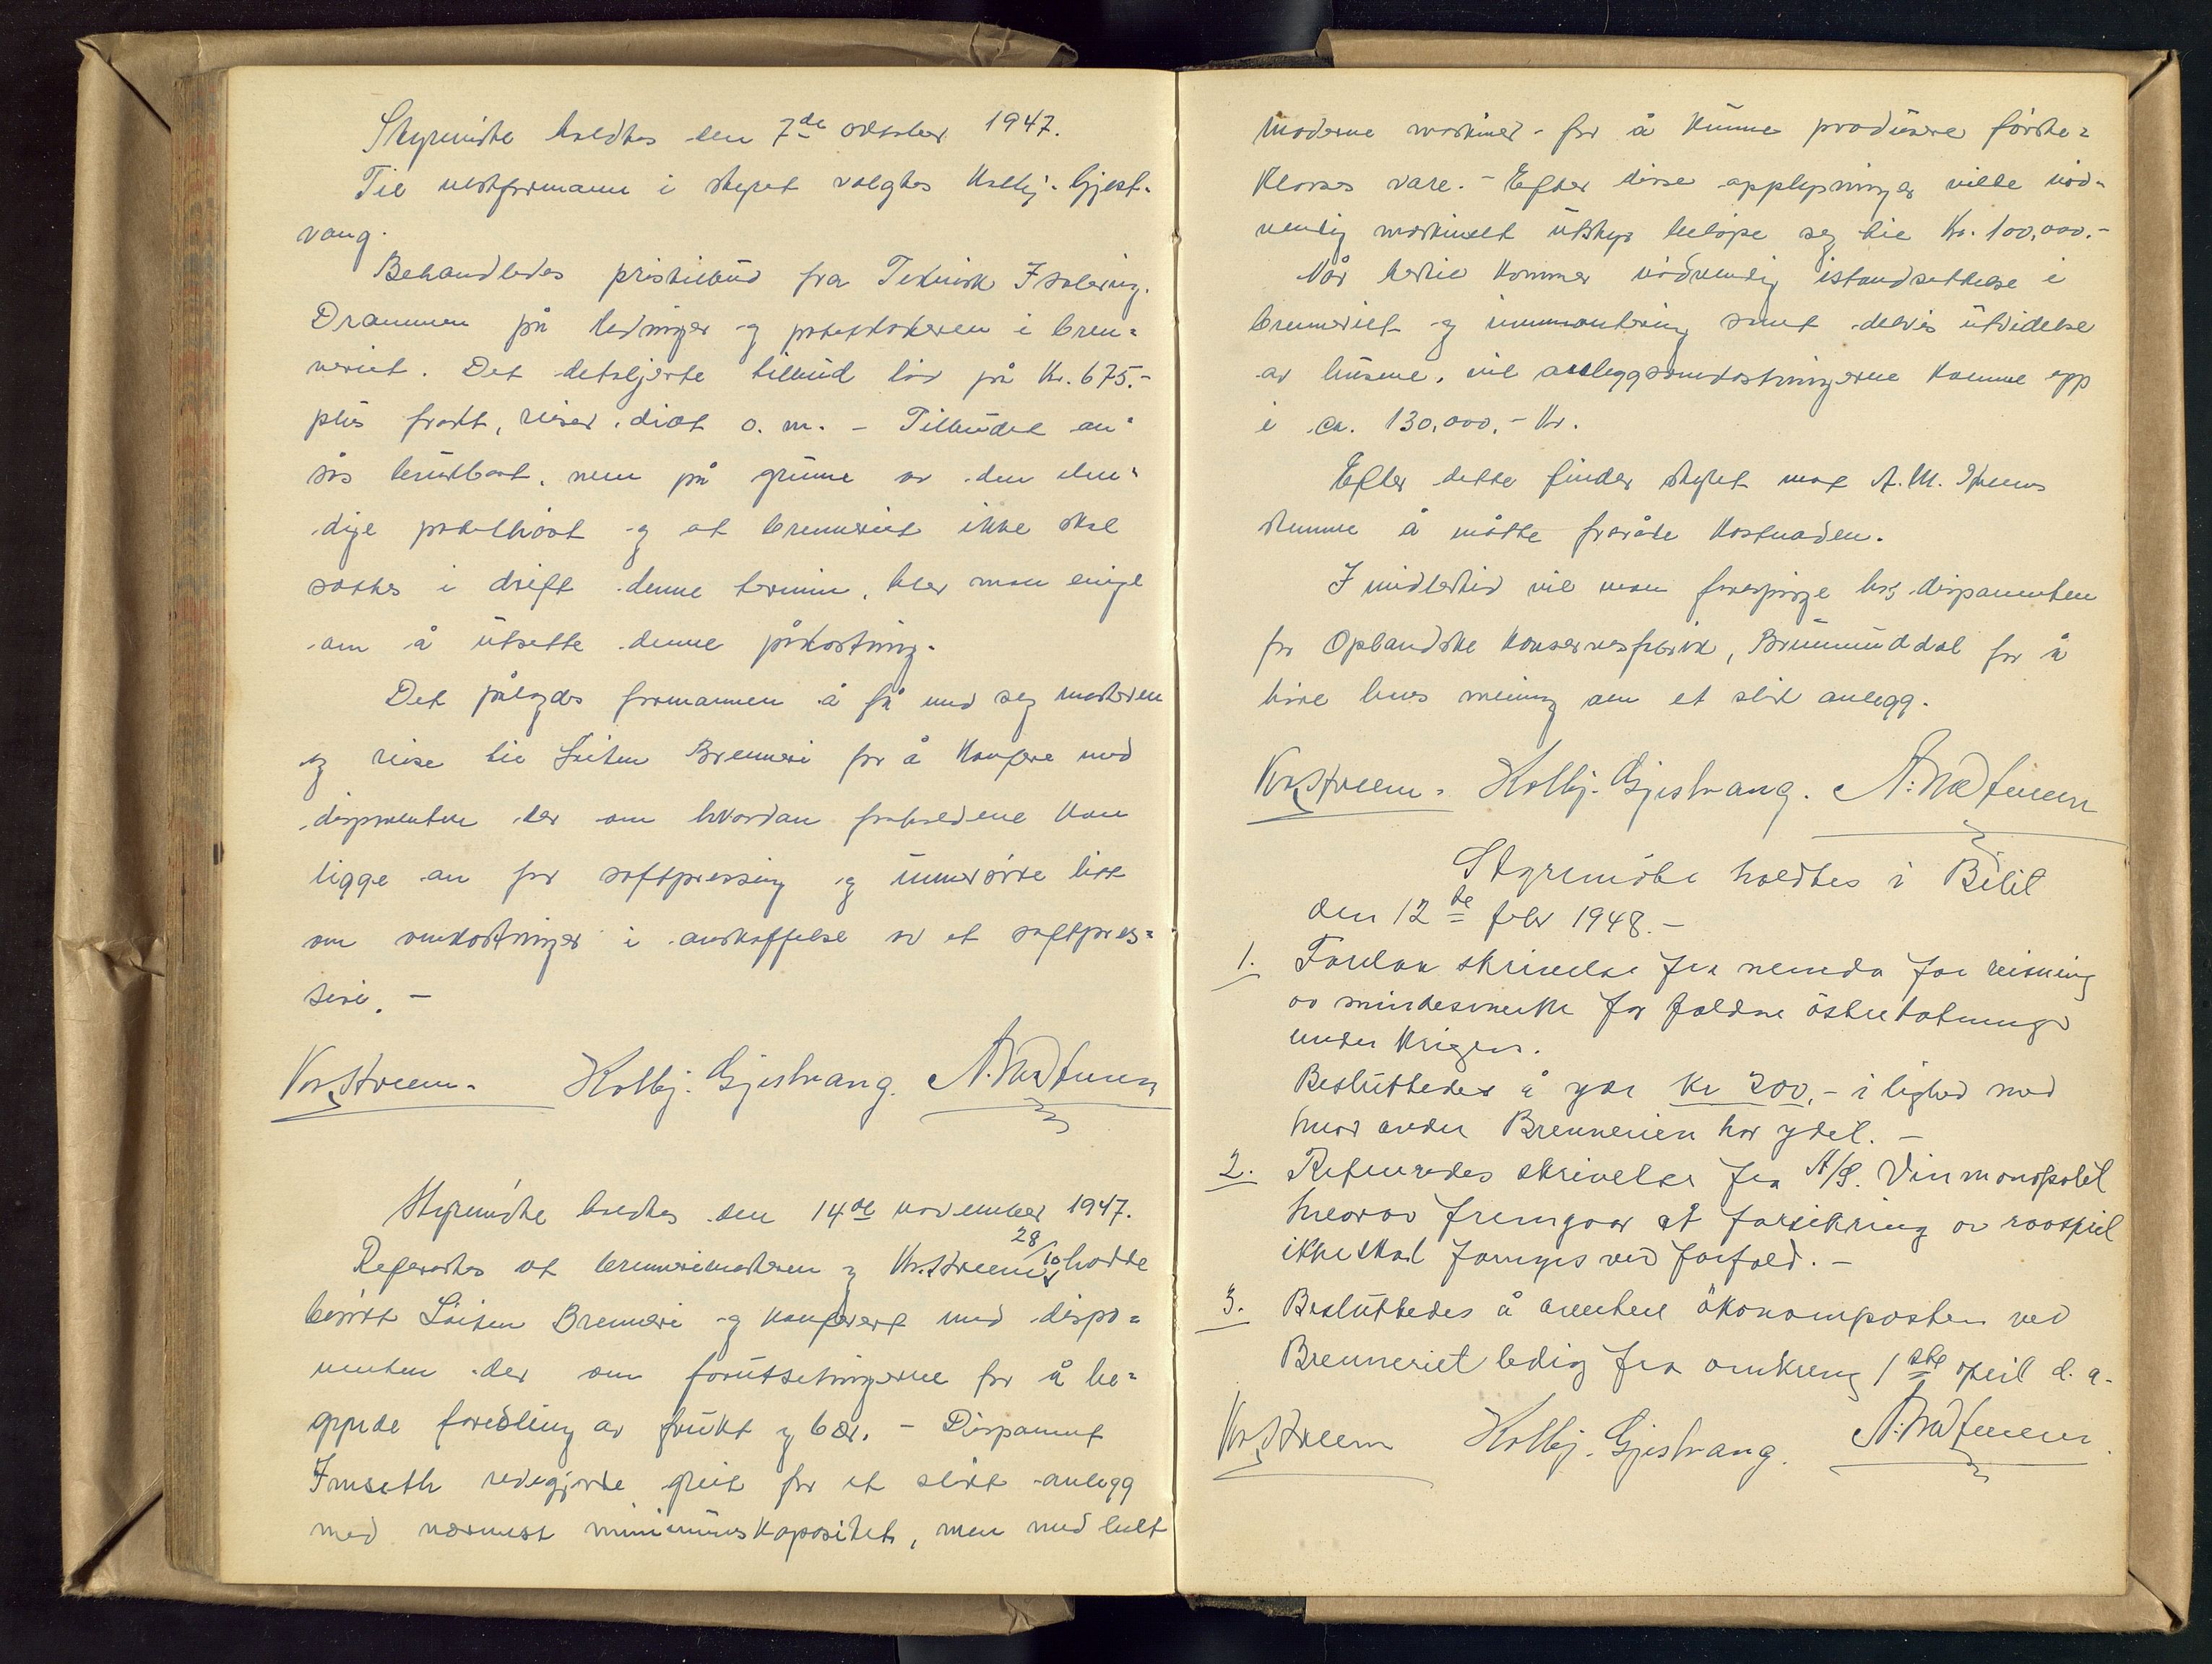 Styremøte holdtes den 7de oktober 1947.
Til nestformann i styret valgtes Kolbj. Gjest-
vang.
Behandledes pristilbud fra Teknisk Isolering.
Drammen på ledninger og potetkokeren i bren-
neriet. Det detaljerte tilbud lød på Kr. 675.-
plus frakt, reiser, diæt o. m. - Tilbudet an-
sås brukbart, men på grunn av den elen-
dige potethøst og at brenneriet ikke skal
settes i drift denne termin, blev man enige
om å utsette denne påkostning.
Det pålagdes formannen å få med seg mesteren
og reise til Løiten Brenneri for å konfere med
disponenten der om hvordan forholdene kan
ligge an for saftpressing og undersøke litt
om omkostninger i anskaffelse av et saftpres-
seri. -
Kr. Strøm. Kolbj. Gjestvang.
Styremøte holdtes den 14de november 1947.
Refertes at brennerimesteren og Kr. Strøm 28/10 hadde
besøkt Løiten Brenneri og konferert med dispo-
nenten der om forutsetningerne for å be-
gynde foredling av frukt og bær. - Disponent
Imseth redegjorde greit for et slikt anlegg
med nærmest minimumskapasitet, men med helt
moderne maskiner - for å kunne produsere første-
klasses vare. - Efter disse opplysninger ville nød-
vendig maskinelt utstyr beløpe seg til Kr. 100,000.-
Når hertil kommer nødvendig istandsettelse i
brenneriet og innmontering samt delvis utvidelse
av husene, vil anleggsomkostningerne komme opp
i ca. 130.000,- Kr.
Efter dette finder styret mot A. M.
stemme å måtte fraråde kostnaden.
Imidlertid vil man forespørge hos disponenten
for Oplandske Konservesfabrik, Brumunddal for å
høre hans mening om et slikt anlegg.
Kr. Strøm. Kolbj. Gjestvang.
Styremøte holdtes i Bilit
den 12te febr 1948.-
1. Forelaa skrivelse fra nemda for reisning
av mindesmerke for faldne østretotninger
under Krigen.
Besluttedes å yde Kr 200,- i lighed med
hvad andre Brennerier har ydet. -
2. Refereredes skrivelse fra A/S. Vinmonopolet
hvorav fremgaar at forsikring av raasprit
ikke skal fornyes ved forfald. -
3. Besluttedes å avertere økonomposten ved
Brenneriet ledig fra omkring 1ste april d. a.
Kr. Strøm Kolbj. Gjestvang.